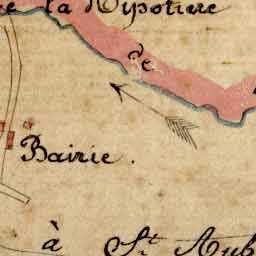 de la Ripotiere
de
Bairie.
à St. Aub